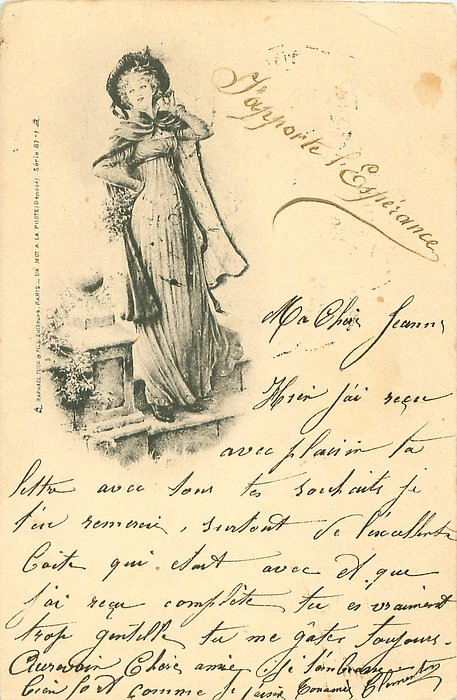 J'apporte l'Espérance
RAPHAEL TUCK & FILS EDITEURS, PARIS _ UN MOT A LA POSTE (Deposé). Série 87-1
Ma Chère Jeanne
Hier j'ai reçu
avec plaisir ta
lettre avec tous tes souhaits je
t'en remercie, surtout de l'excellente
boite qui etait avec et que
j'ai reçu complète tu es vraiment
trop gentille tu me gâtes toujours.
Aurevoir Chère amie, je t'embrasse
bien fort comme je t'aime